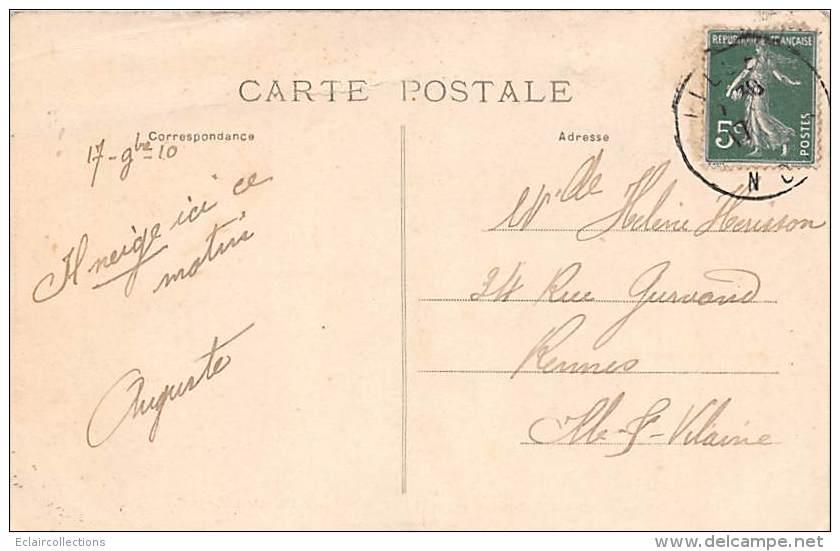 CARTE POSTALE
Correspondance
Adresse
REPUBLIQUE FRANÇAISE
5c
POSTES
17-9bre-10
Il neige ici ce
matin
Auguste
Hélène Hérisson
34 Rue Gurvand
Rennes
Ille-&-Vilaine
Eclaircollections
www.delcampe.net